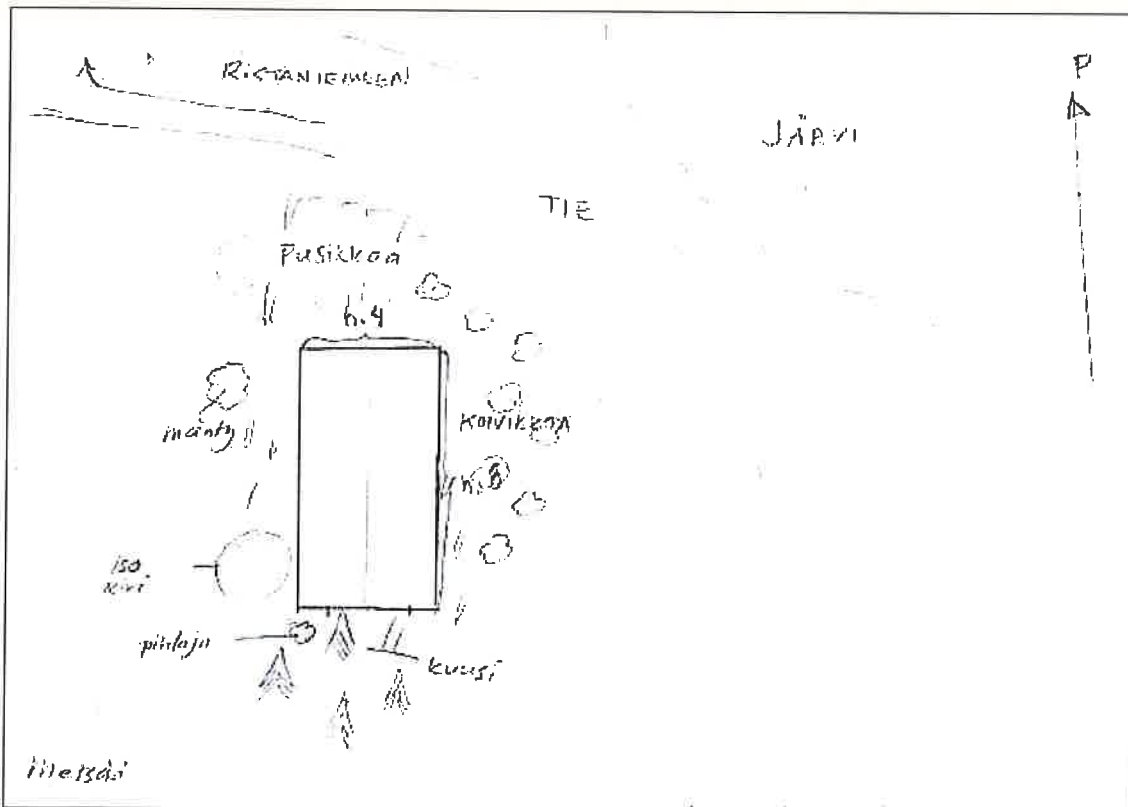 P
RISTANIEMEEN
JÄRVI
TIE
Pusikkoa
n.4
mänty
Koivikkoa
n.8
iso
kivi
pihlaja
kuusi
Metsää